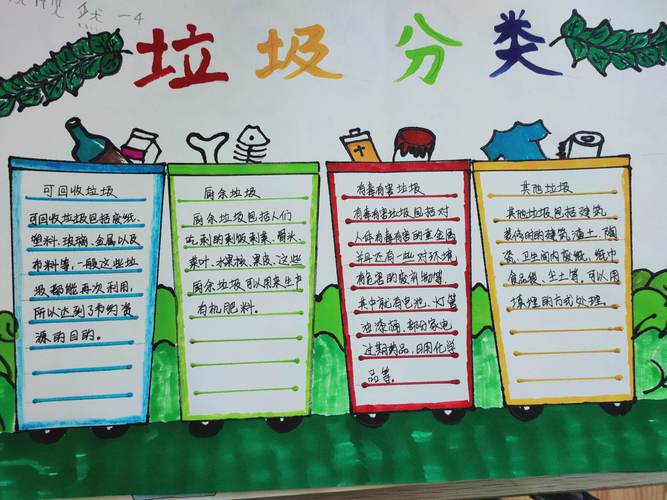 然 一4
垃圾分类
可回收垃圾
可回收垃圾包括废纸、
塑料、玻璃、金属以及
布料等,一般这些垃
圾都能再次利用,
所以达到了节约资
源的目的。
厨余垃圾
厨余垃圾包括人们
吃剩的剩饭剩菜、骨头、
菜叶、水果核、果皮、这些
厨余垃圾可以用来生产
有机肥料。
有毒有害垃圾
有毒有害垃圾包括对
人体有毒有害的重金属
并且还有一些对环境
有危害的废弃物等。
其中就有电池、灯管
油漆桶、部分家电
过期药品、日用化学
品等。
其他垃圾
其他垃圾包括建筑
装修时的建筑渣土、陶
瓷、卫生间内废纸、纸巾
食品袋、尘土等。可以用
填埋的方式处理